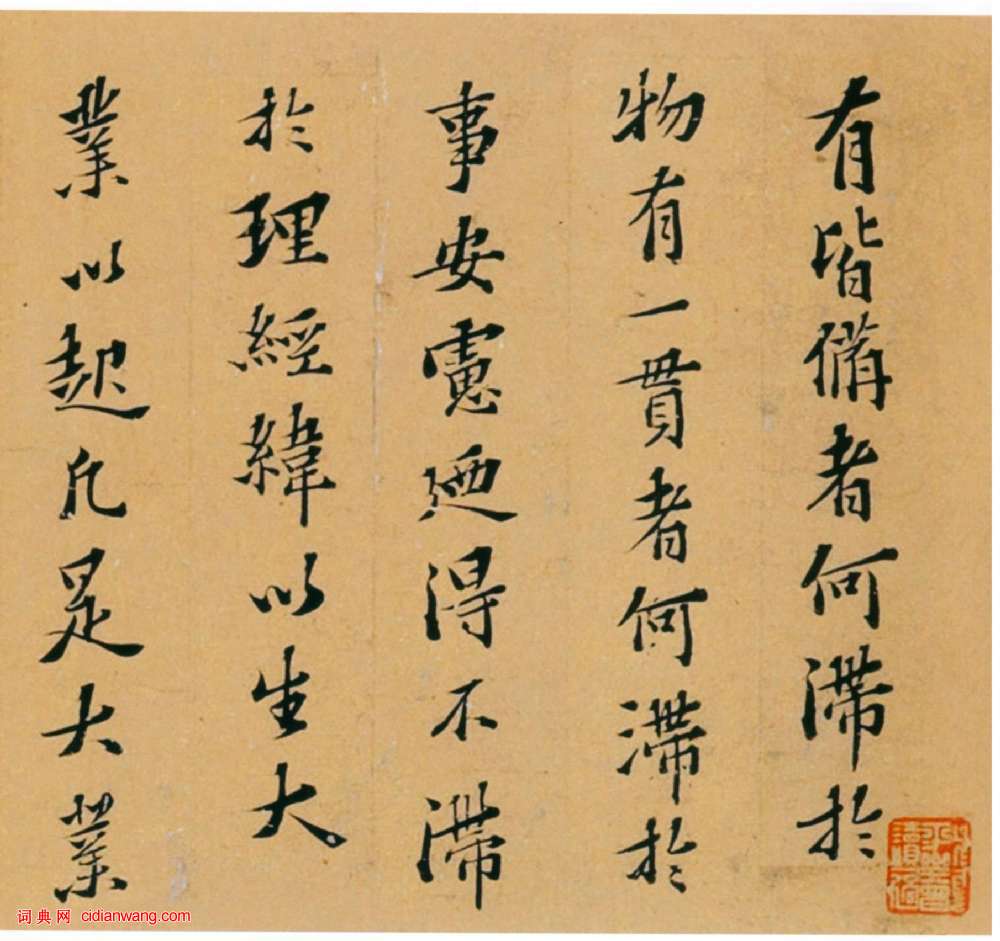 有皆備者何滯於
物有一貫者何滯於
事安慮廼得不滯
於理經緯以生大
業以起凡是大業
词典网 cidianwang.com